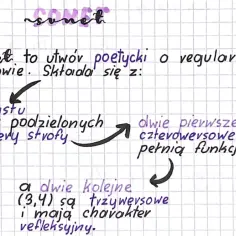 SONET
sonet
to utwór poetycki o regular
owie. Składa się z:
podzielonych
strofy
dwie pierwsze
czterowersowe
pełnią funkcj
a dwie kolejne
(3,4) są trzywersowe
i mają charakter
refleksyjny.